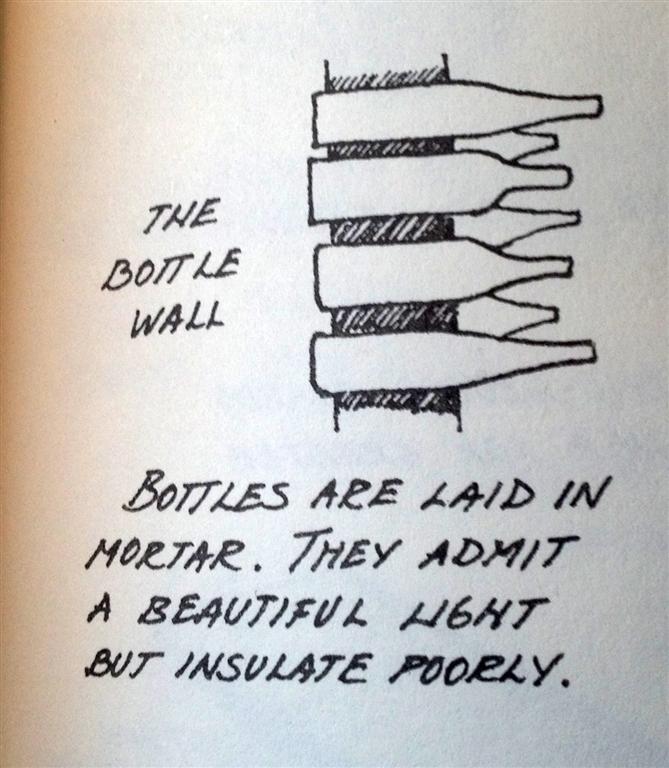 THE
BOTTLE
WALL
BOTTLES ARE LAID IN
MORTAR. THEY ADMIT
A BEAUTIFUL LIGHT
BUT INSULATE POORLY.